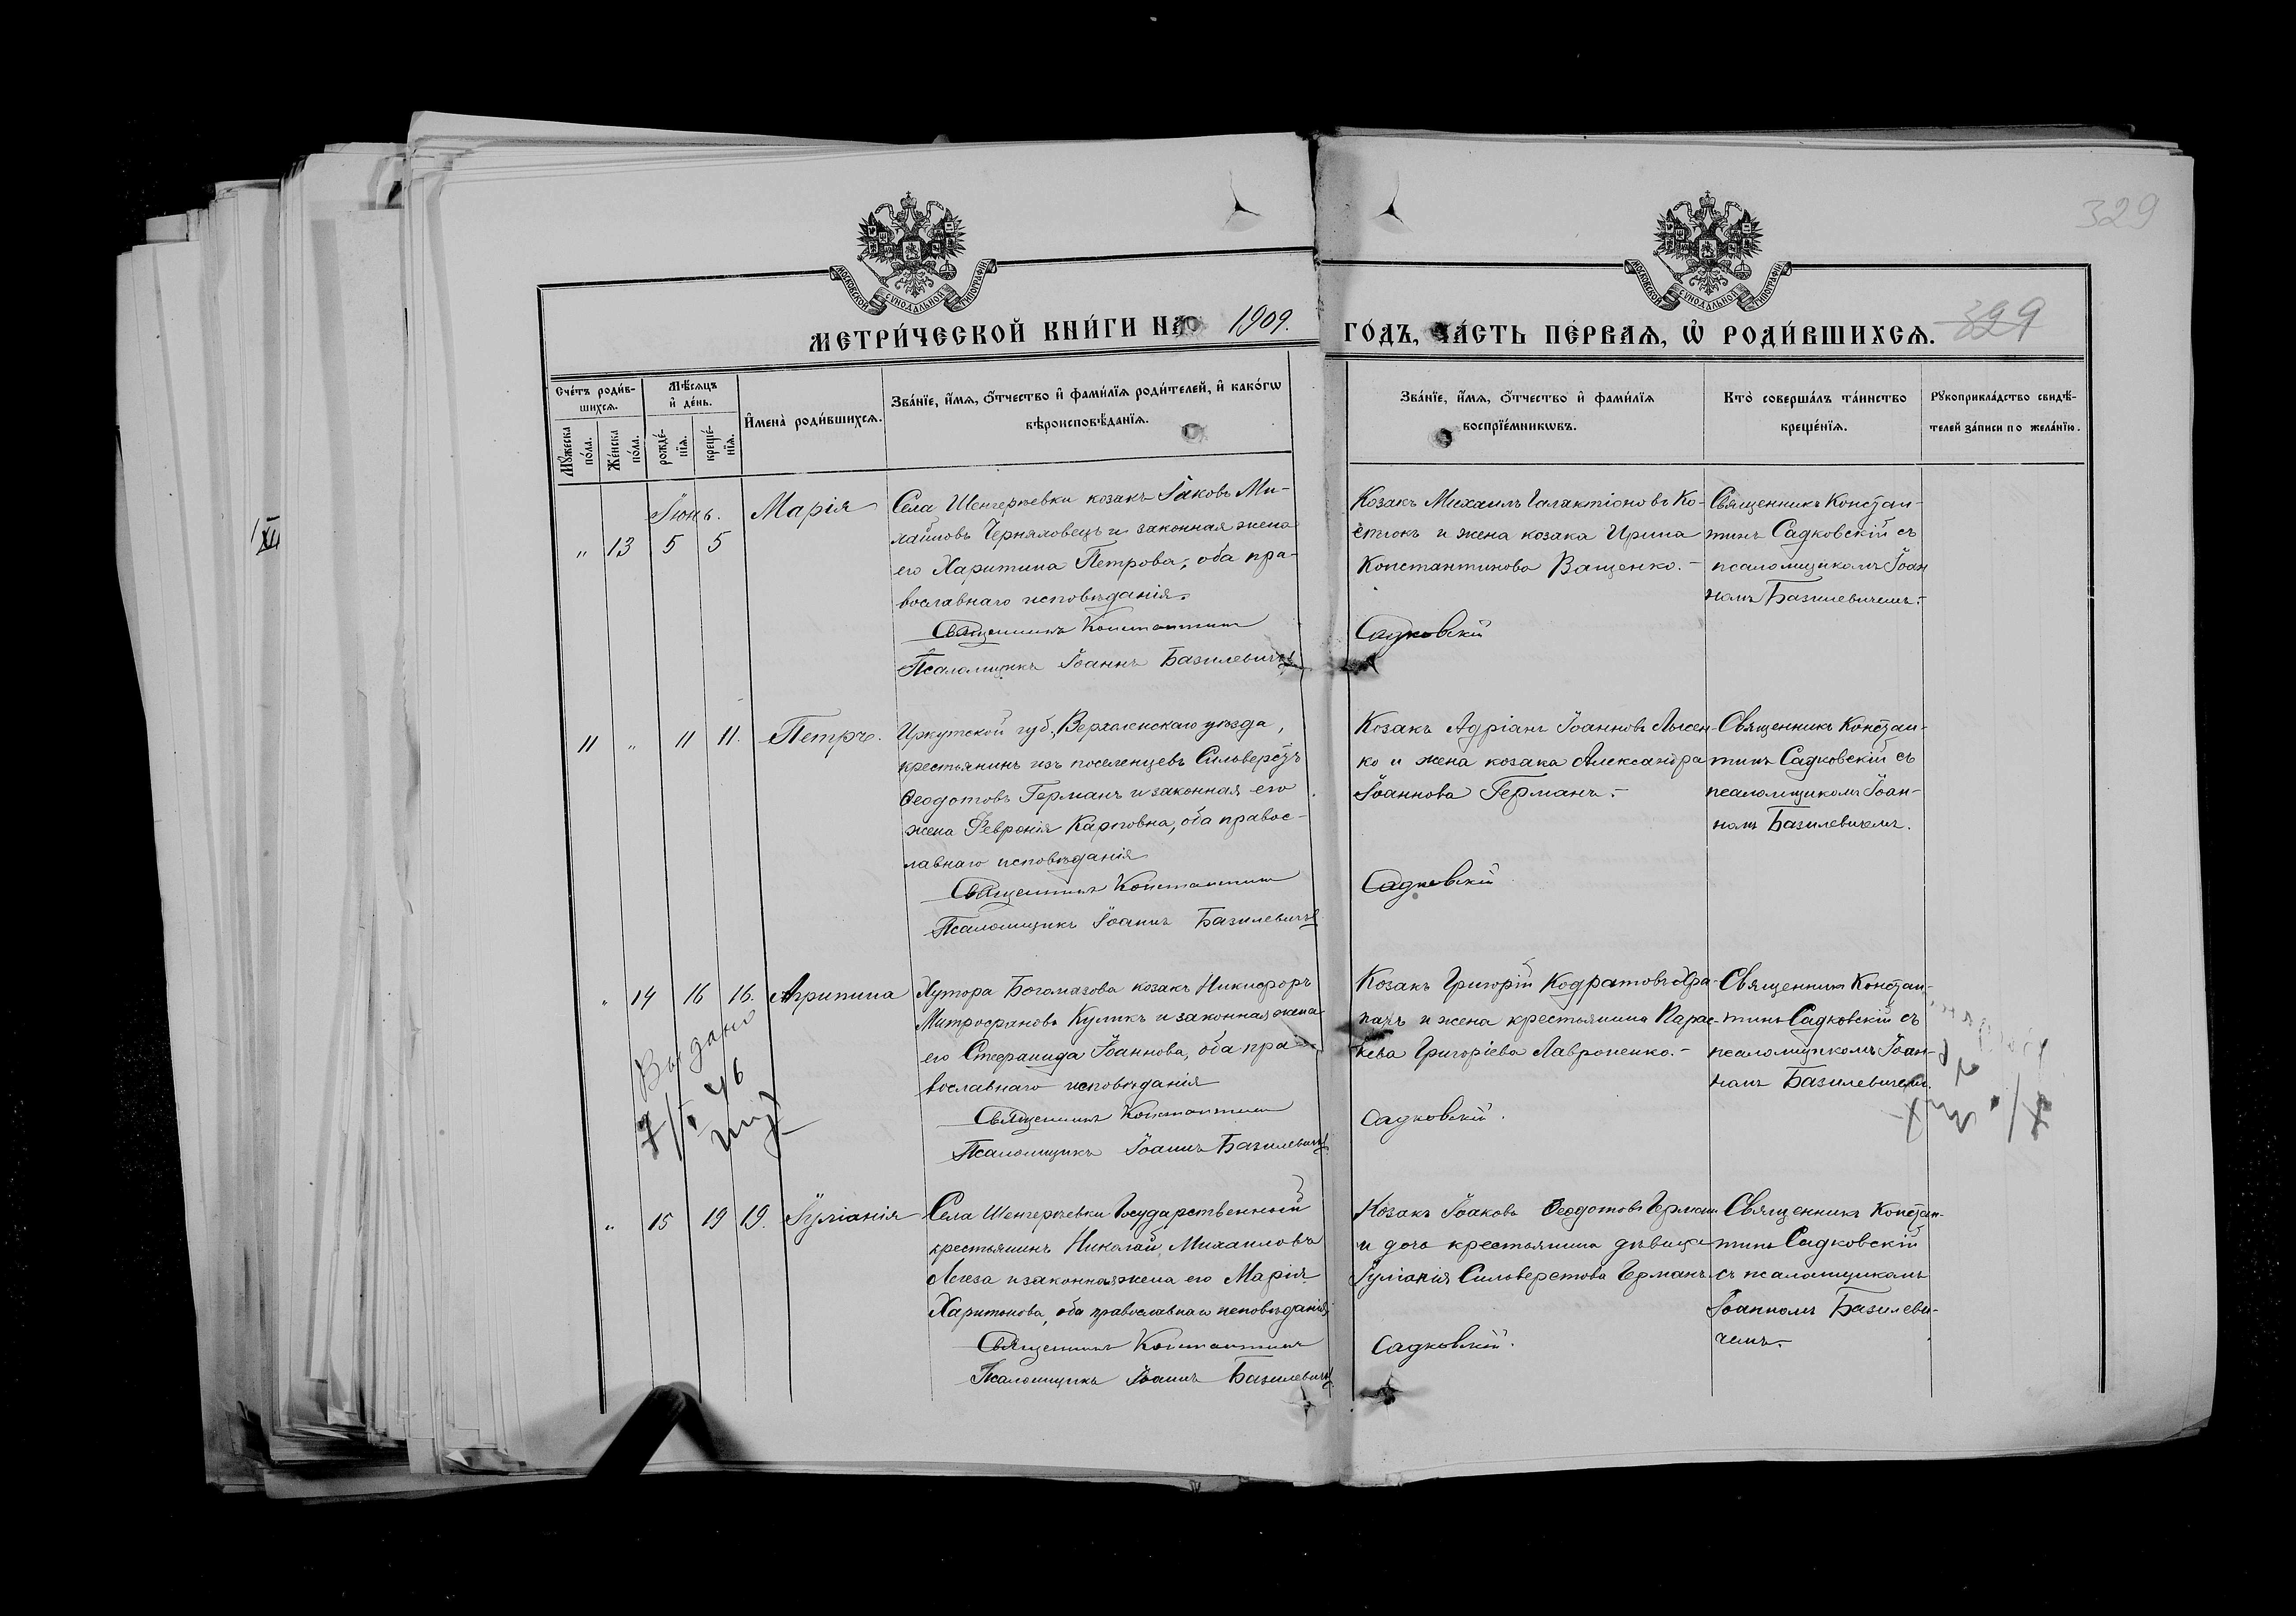 329
МОСКОВСКОЙ СѴНОДАЛЬНОЙ ТИПОГРАФІИ
МОСКОВСКОЙ СѴНОДАЛЬНОЙ ТИПОГРАФІИ
МЕТРИ́ЧЕСКОЙ КНИ́ГИ НА 1909.
ГО́ДЪ, ЧА́СТЬ ПЕ́РВАѦ, Ѡ҆ РОДИ́ВШИХСѦ. 329
Сче́тъ роди́в-
шихсѧ.
Мѣ́сѧцъ
и҆ де́нь.
Мꙋ́жеска
по́ла.
Же́нска
по́ла.
рожде́-
нїѧ.
креще́-
нїѧ.
И҆мена̀ роди́вшихсѧ.
Зва́нїе, и҆́мѧ, ѻ҆́тчество и҆ фами́лїѧ роди́телей, и҆ како́гѡ
вѣроисповѣ́данїѧ.
Зва́нїе, и҆́мѧ, ѻ҆́тчество и҆ фами́лїѧ
воспрїе́мникѡвъ.
Кто̀ соверша́лъ та́инство
креще́нїѧ.
Рꙋкоприкла́дство свидѣ́-
телей за́писи по жела́нїю.
Іюнь.
" 13 5 5
Марія
Села Шенгерѣевки козакъ Іаковъ Ми-
хайловъ Черняховецъ и законная жена
его Харитина Петрова, оба пра-
вославнаго исповѣданія.
Священникъ Константинъ
Псаломщикъ Іоаннъ Базилевичъ
Козакъ Михаилъ Галактіоновъ Ко-
стюкъ и жена козака Ирина
Константинова Ващенко.-
Садковскій
Священникъ Констан-
тинъ Садковскій съ
псаломщикомъ Іоан
номъ Базилевичемъ.-
11 " 11 11.
Петръ.
Иркутской губ., Верхоленскаго уѣзда,
крестьянинъ изъ поселенцевъ Сильверстъ
Ѳеодотовъ Германъ и законная его
жена Февронія Карповна, оба правос-
лавнаго исповѣданія
Священникъ Константинъ
Псаломщикъ Іоаннъ Базилевичъ
Козакъ Адріанъ Іоанновъ Лысен-
ко и жена козака Александра
Іоаннова Германъ.-
Садковскій
Священникъ Констан-
тинъ Садковскій съ
псаломщикомъ Іоан-
номъ Базилевичемъ.
" 14 16 16.
Агрипина
Хутора Богомазова козакъ Никифоръ
Митрофановъ Куликъ и законная жена
его Стефанида Іоаннова, оба пра-
вославнаго исповѣданія
Священникъ Константинъ
Псаломщикъ Іоаннъ Базилевичъ
Козакъ Григорій Кодратовъ
и жена крестьянина Парас-
кева Григоріева Лавроненко.-
Садковскій.
Священникъ Констан-
тинъ Садковскій съ
псаломщикомъ Іоан-
номъ Базилевичемъ.
Выдано
46
" 15 19 19.
Іуліанія
Села Шенгерѣевки Государственный
крестьянинъ Николай Михаиловъ
и законная жена его Марія
Харитонова, оба православнаго исповѣданія
Священникъ Константинъ
Псаломщикъ Іоаннъ Базилевичъ
Козакъ Іоаковъ Ѳеодотовъ Германъ
и дочь крестьянина дѣвица
Іуліанія Сильверстова Германъ.
Садковскій.
Священникъ Констан-
тинъ Садковскій
съ псаломщикомъ
Іоанномъ Базилеви-
чемъ.-